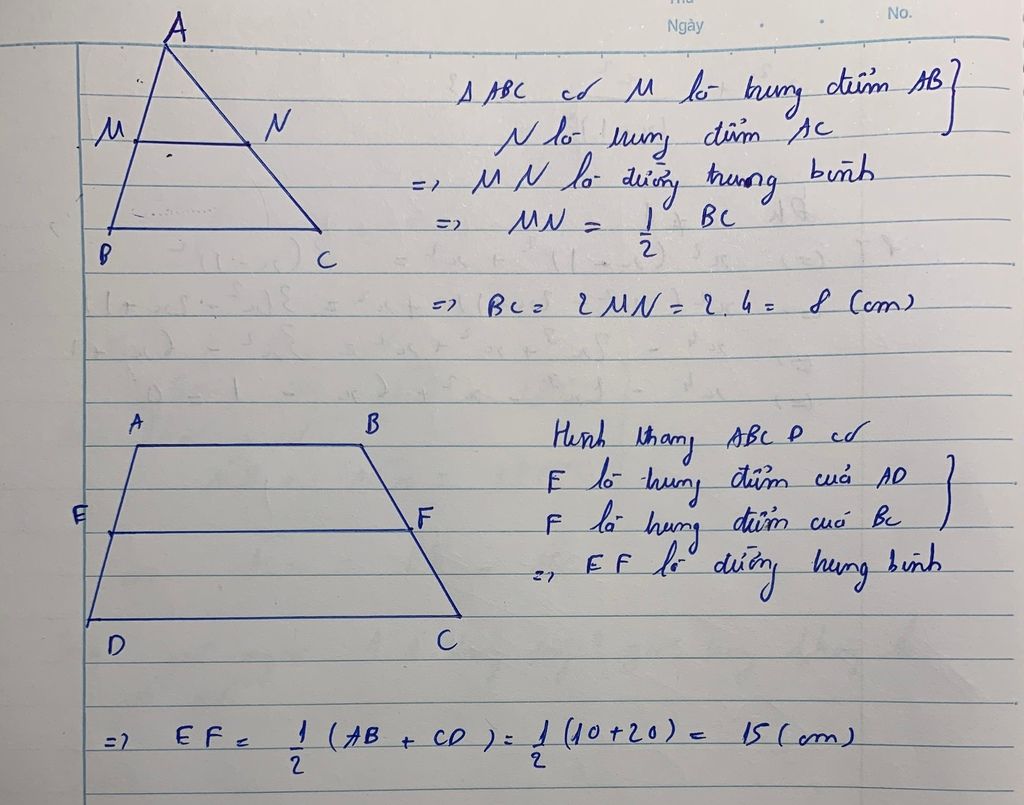 Ngày
No.
A
M
N
B
C
Δ ABC có M là trung điểm AB }
N là trung điểm AC
=> MN là đường trung bình
=> MN = 1/2 BC
=> BC = 2 MN = 2.4 = 8 (cm)
A
B
E
F
D
C
Hình thang ABCD có
E là trung điểm của AD }
F là trung điểm của BC
=> EF là đường trung bình
=> EF = 1/2 (AB + CD) = 1/2 (10+20) = 15 (cm)